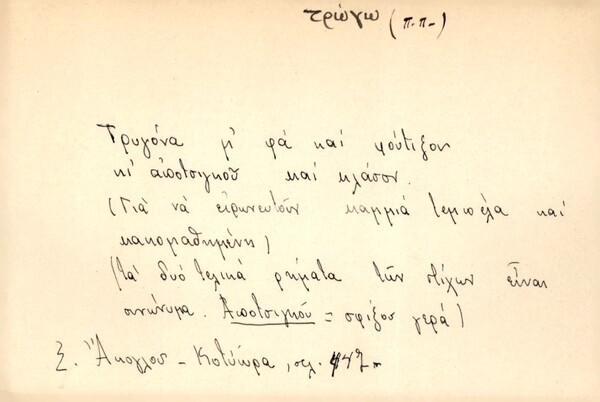 τρώγω (π.π.)
Τρυγόνα μ' φά καί φούτιξον
κι' ἀποτσιγκοῦ καί κλάσον.
(Γιά νά εἰρωνευτοῦν καμμιά τεμπέλα καί
κακομαθημένη)
(τά δυό τελικά ρήματα τῶν στίχων εἶναι
συνώνυμα. Ἀποτσιγκοῦ = σφίξου γερά)
Ξ. Ἄκογλου - Κοτύωρα, σελ. 447